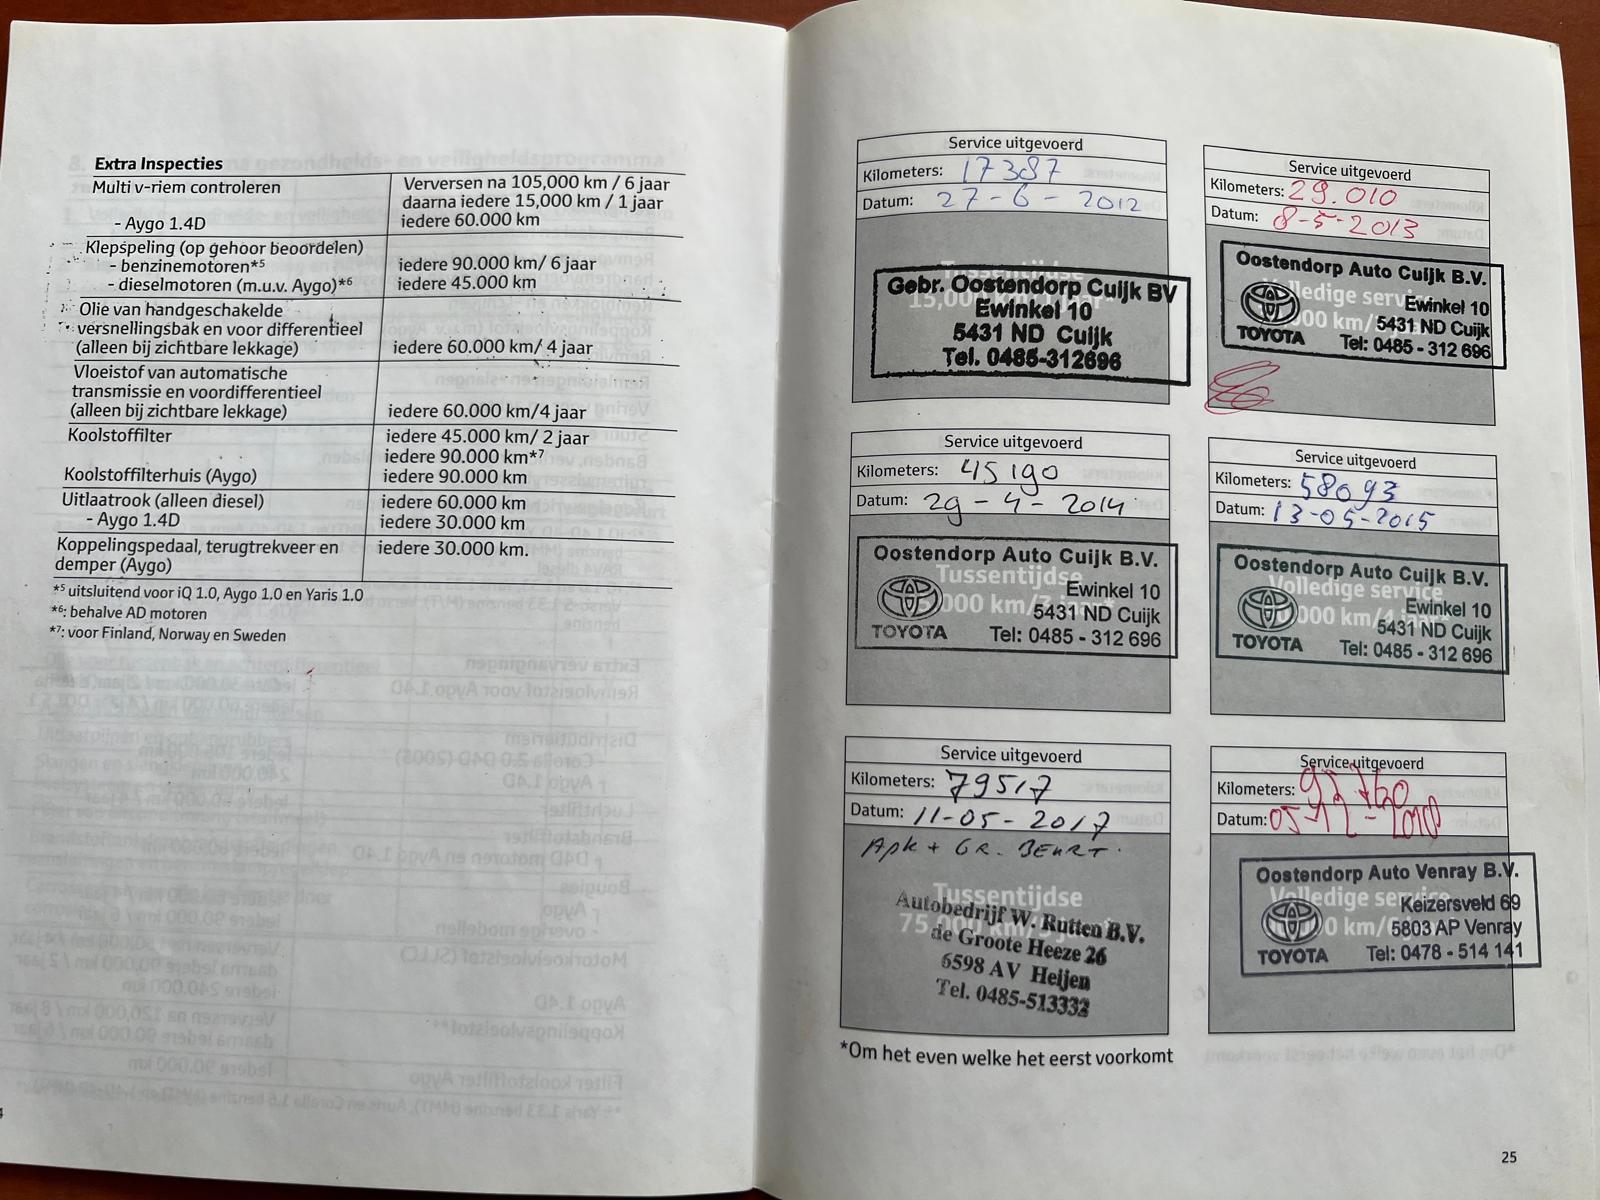 Extra Inspecties
Multi v-riem controleren Ververses na 105,000 km / 6 jaar
daarna iedere 15,000 km / 1 jaar
- Aygo 1.4D iedere 60.000 km
Klepspeling (op gehoor beoordelen)
- benzinemotoren*5 iedere 90.000 km/ 6 jaar
- dieselmotoren (m.u.v. Aygo)*6 iedere 45.000 km
Olie van handgeschakelde
versnellingsbak en voor differentieel
(alleen bij zichtbare lekkage) iedere 60.000 km/ 4 jaar
Vloeistof van automatische
transmissie en voordifferentieel
(alleen bij zichtbare lekkage) iedere 60.000 km/4 jaar
Koolstoffilter iedere 45.000 km/ 2 jaar
iedere 90.000 km*7
Koolstoffilterhuis (Aygo) iedere 90.000 km
Uitlaatrook (alleen diesel) iedere 60.000 km
- Aygo 1.4D iedere 30.000 km
Koppelingspedaal, terugtrekveer en iedere 30.000 km.
demper (Aygo)
*5 uitsluitend voor iQ 1.0, Aygo 1.0 en Yaris 1.0
*6: behalve AD motoren
*7: voor Finland, Norway en Sweden
Service uitgevoerd
Kilometers: 17387
Datum: 27-6-2012
Tussentijdse
15,000 km/1 jaar*
Gebr. Oostendorp Cuijk BV
Ewinkel 10
5431 ND Cuijk
Tel. 0485-312696
Service uitgevoerd
Kilometers: 29.010
Datum: 8-5-2013
Oostendorp Auto Cuijk B.V.
Ewinkel 10
5431 ND Cuijk
TOYOTA Tel: 0485 - 312 696
Service uitgevoerd
Kilometers: 45190
Datum: 29-4-2014
Oostendorp Auto Cuijk B.V.
Tussentijdse
Ewinkel 10
5431 ND Cuijk
TOYOTA Tel: 0485 - 312 696
Service uitgevoerd
Kilometers: 58093
Datum: 13-05-2015
Oostendorp Auto Cuijk B.V.
Volledige service
Ewinkel 10
5431 ND Cuijk
TOYOTA Tel: 0485 - 312 696
Service uitgevoerd
Kilometers: 79517
Datum: 11-05-2017
APK + GR. BEURT.
Tussentijdse
75,000 km/5 jaar*
Autobedrijf W. Rutten B.V.
de Groote Heeze 26
6598 AV Heijen
Tel. 0485-513332
Service uitgevoerd
Kilometers:
Datum: 05-12-2018
Oostendorp Auto Venray B.V.
Volledige service
Keizersveld 69
5803 AP Venray
TOYOTA Tel: 0478 - 514 141
*Om het even welke het eerst voorkomt
25